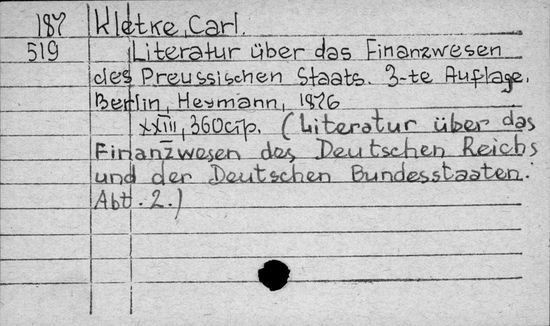 187 Kletke, Carl.
519 Literatur über das Finanzwesen
des Preussischen Staats. 3-te Auflage.
Berlin, Heymann, 1876
XXIII, 360 стр. (Literatur über das
Finanzwesen des Deutschen Reichs
und der Deutschen Bundesstaaten.
Abt. 2.)